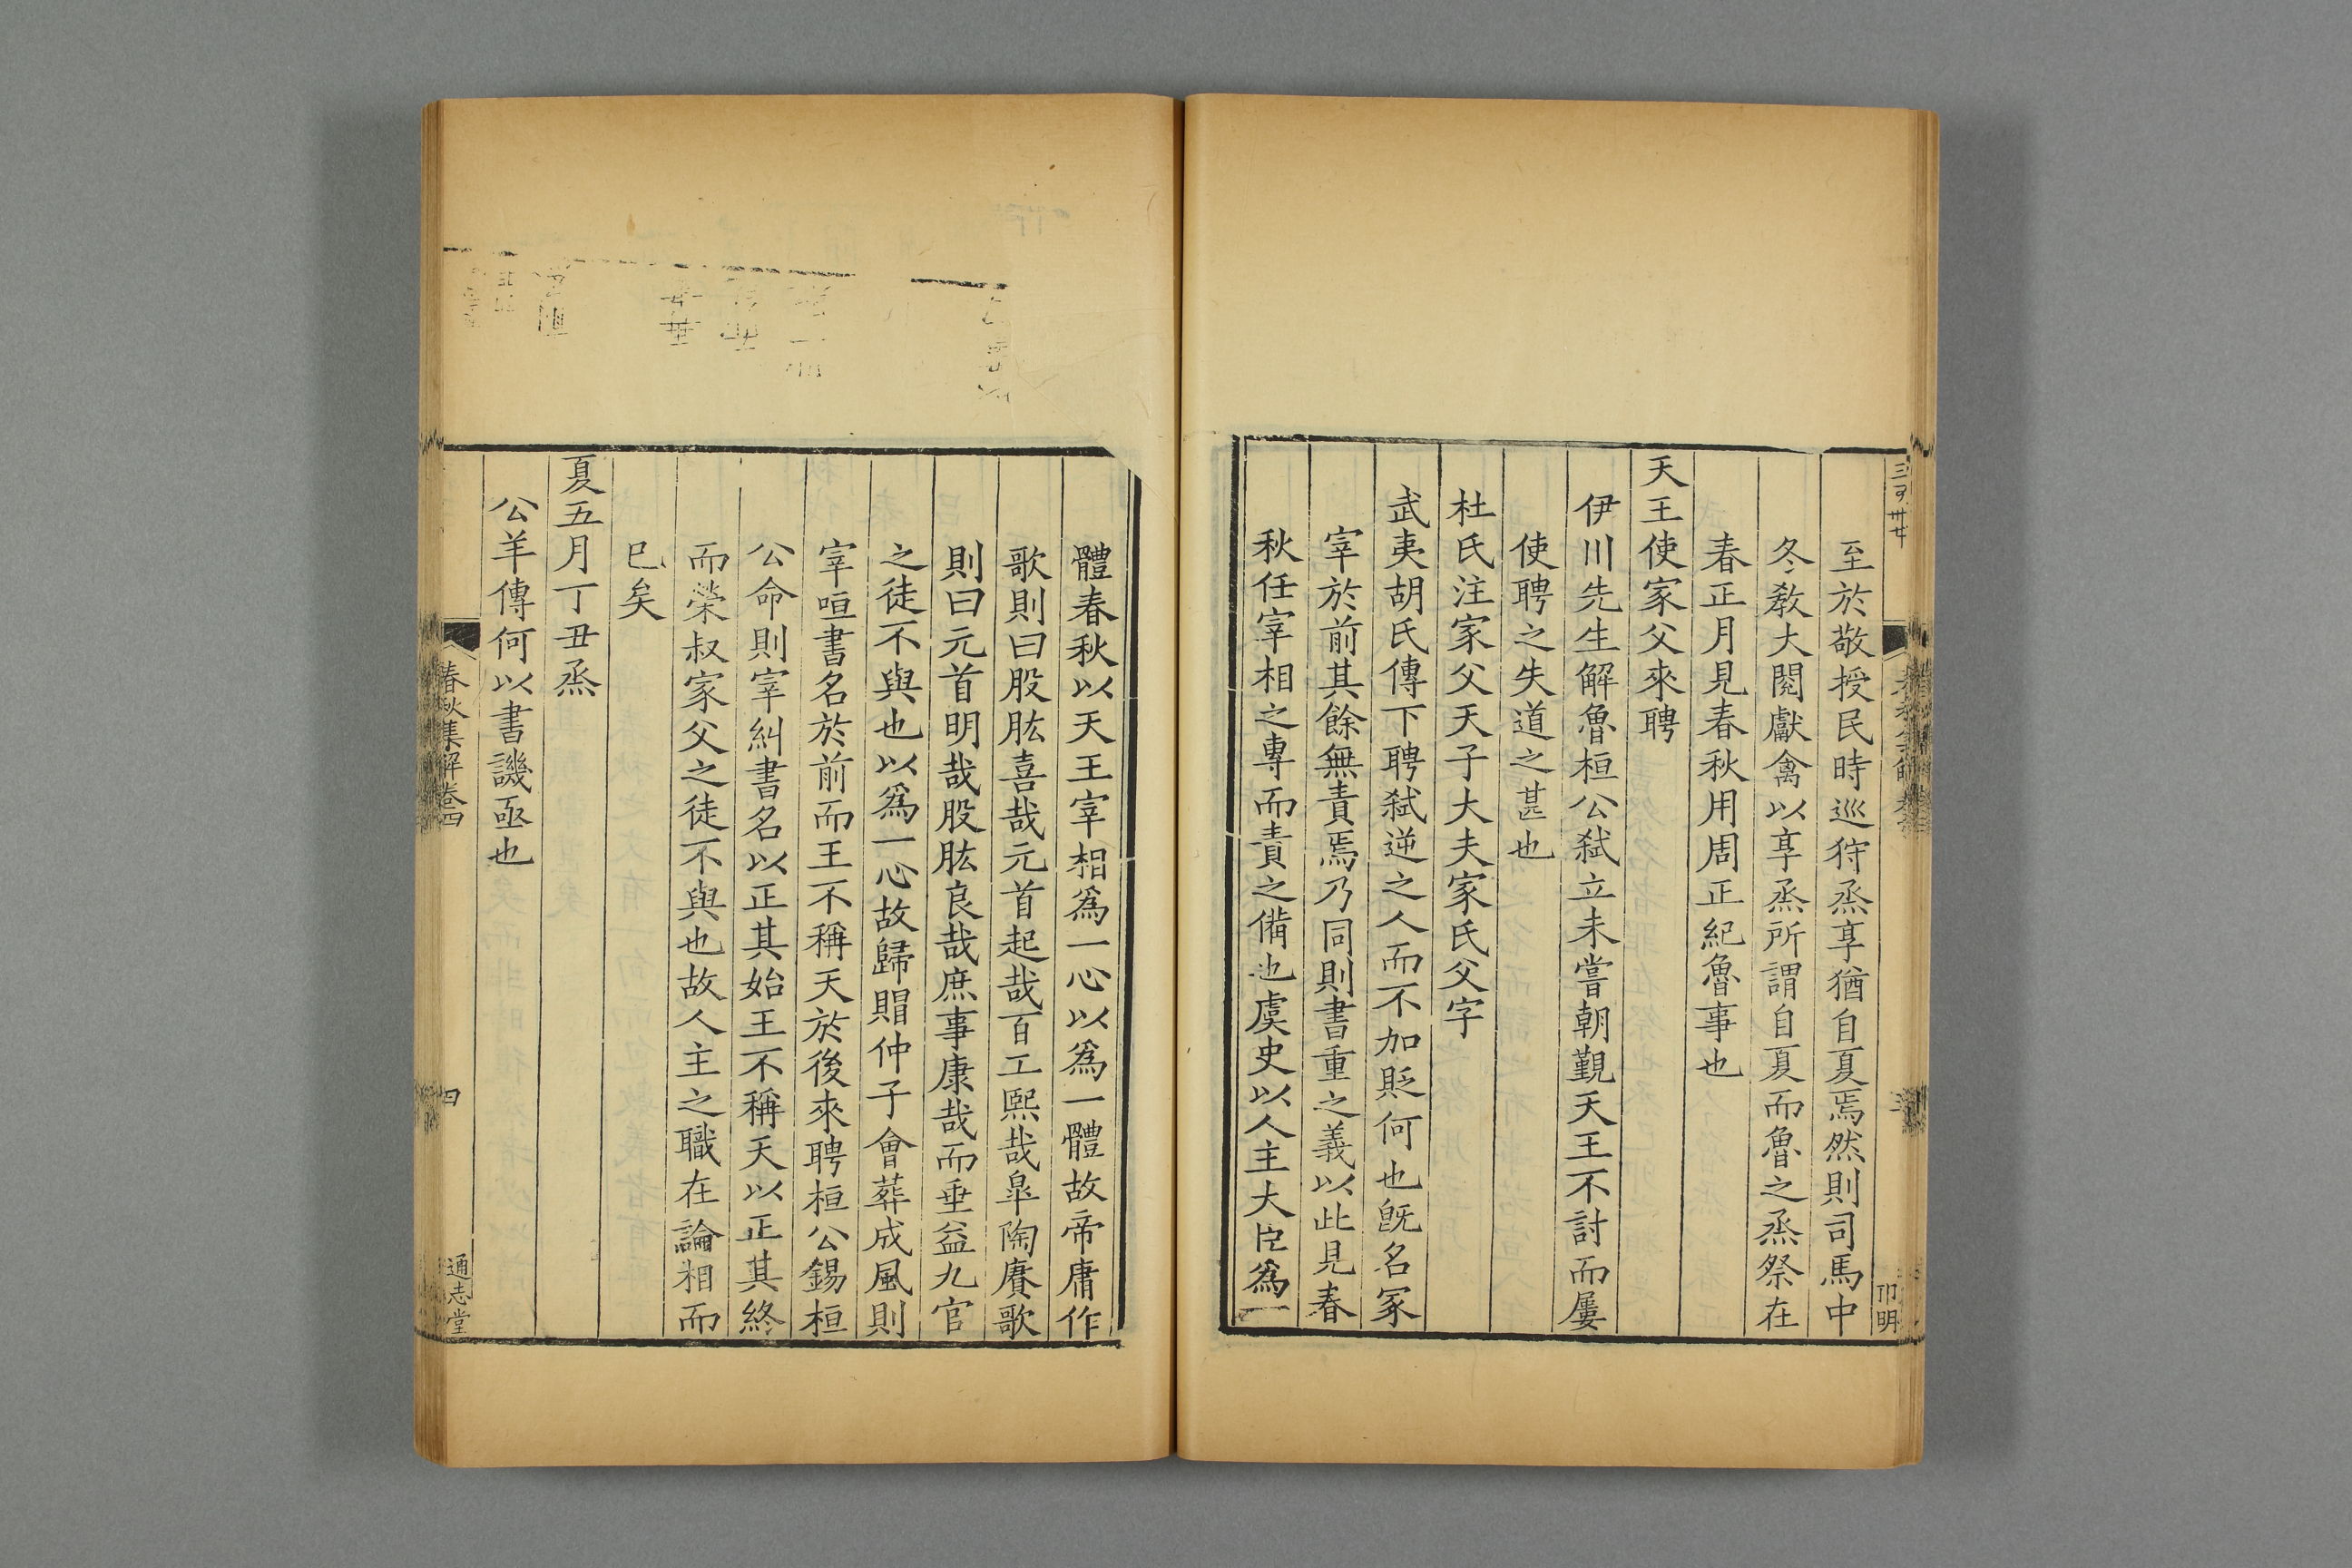 至於敬授民時巡狩烝享猶自夏焉然則司馬中
冬教大閱獻禽以享烝所謂自夏而魯之烝祭在
春正月見春秋用周正紀魯事也
天王使家父來聘
伊川先生解魯桓公弑立未嘗朝覲天王不討而屢
使聘之失道之甚也
杜氏注家父天子大夫家氏父字
武夷胡氏傳下聘弑逆之人而不加貶何也旣名冢
宰於前其餘無責焉乃同則書重之義以此見春
秋任宰相之專而責之備也虞史以人主大臣爲一
體春秋以天王宰相爲一心以爲一體故帝庸作
歌則曰股肱喜哉元首起哉百工熙哉臯陶賡歌
則曰元首明哉股肱良哉庶事康哉而垂益九官
之徒不與也以爲一心故歸賵仲子會葬成風則
宰咺書名於前而王不稱天於後來聘桓公錫桓
公命則宰糾書名以正其始王不稱天以正其終
而榮叔家父之徒不與也故人主之職在論相而
已矣
夏五月丁丑烝
公羊傳何以書譏亟也
春秋集解卷四
四
通志堂